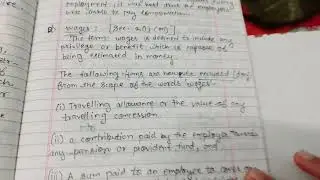 employment, it was held that the employer
was liable to pay compensation.
Wages : [Sec. 2(1)(m)]
The term wages is defined to include any
privilege or benefit which is capable of
being estimated in money.
The following items are however excluded
from the scope of the words wages
(i) Travelling allowance or the value of any
travelling concession
(ii) a contribution paid by the employer towards
any pension or provident fund, and
(iii) A sum paid to an employee to cover